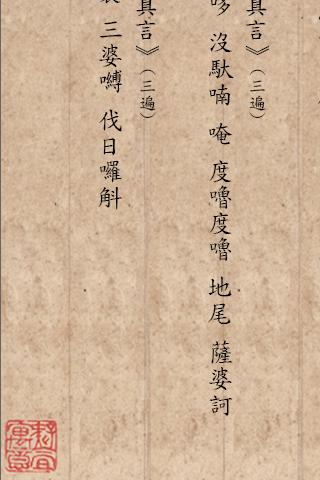 真言》（三遍）
哆 沒馱喃 唵 度嚕度嚕 地尾 薩婆訶
真言》（三遍）
三婆嚩 伐日囉斛